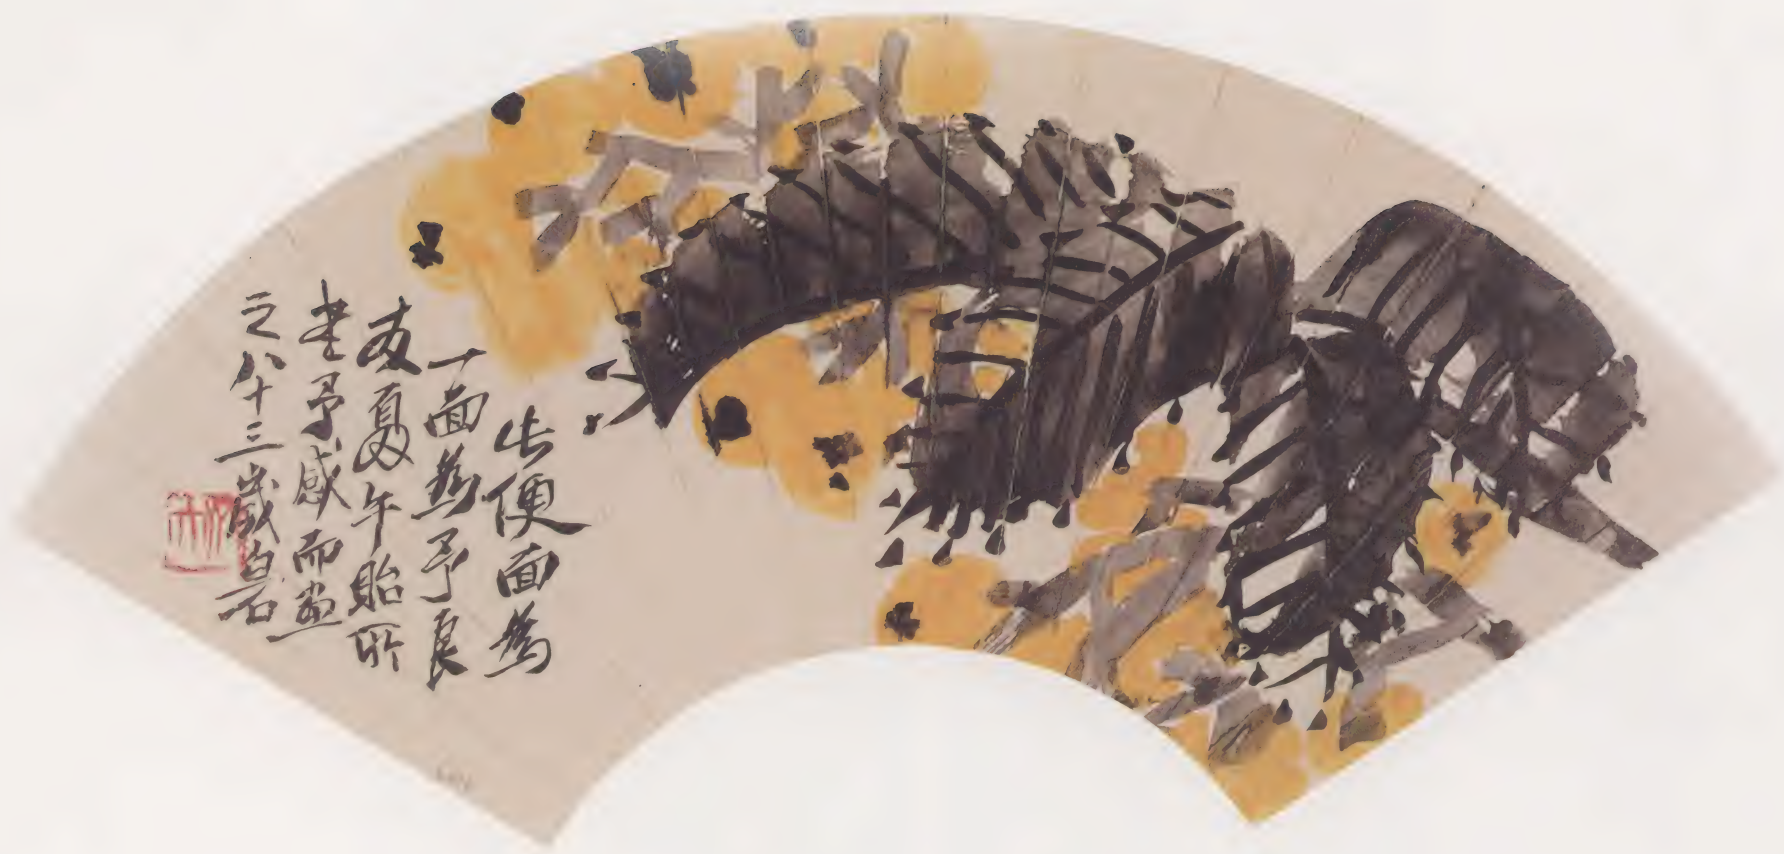 此便面為
一面為予良
友夏午貽所
書予感而畫
之八十三歲白石